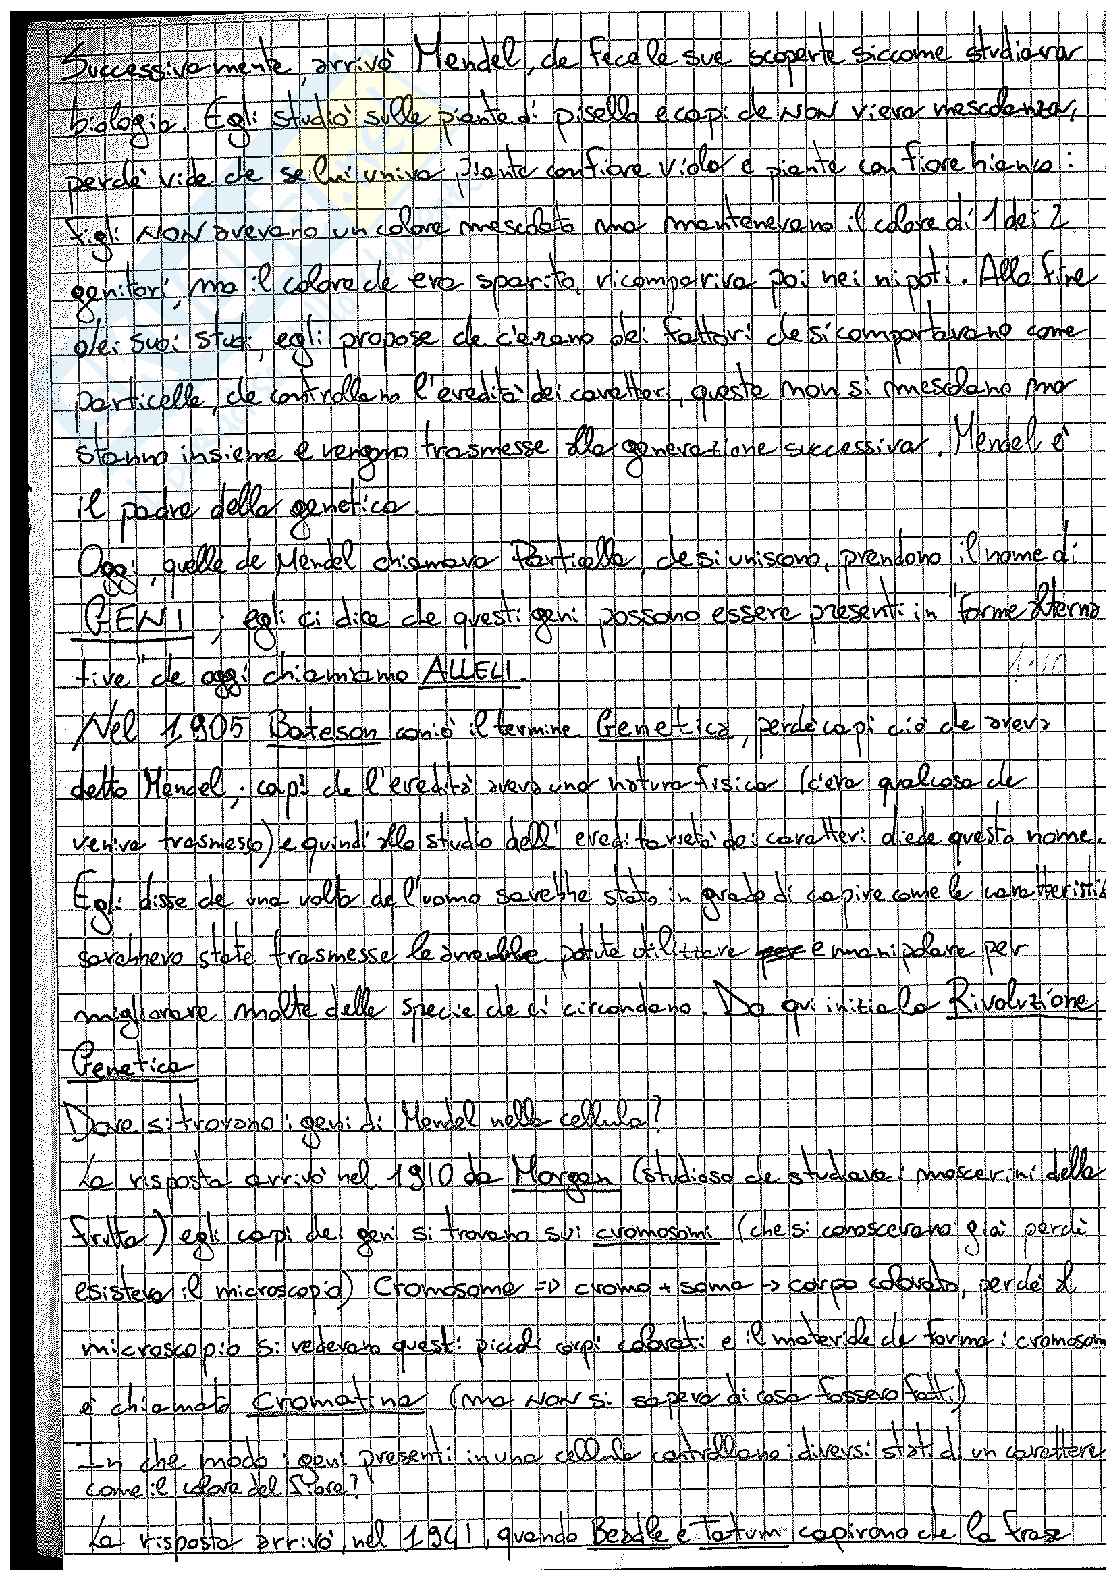 Successivamente, arrivò Mendel, che fece le sue scoperte siccome studiava
biologia. Egli studiò sulle piante di pisello e capì che NON vi era mescolanza,
perché vide che se lui univa piante con fiore viola e piante con fiore bianco:
figli NON avevano un colore mescolato ma mantenevano il colore di 1 dei 2
genitori, ma il colore che era sparito, ricompariva poi nei nipoti. Alla fine
dei suoi studi, egli propose che c'erano dei fattori che si comportavano come
particelle, che controllano l'eredità dei caratteri, queste non si mescolano ma
stanno insieme e vengono trasmesse alla generazione successiva. Mendel è
il padre della genetica.
Oggi, quelle che Mendel chiamava Particelle, che si uniscono, prendono il nome di
GENI; egli ci dice che questi geni possono essere presenti in "forme alterna
tive" che oggi chiamiamo ALLELI.
Nel 1905 Bateson coniò il termine Genetica, perché capì ciò che aveva
detto Mendel; capì che l'eredità aveva una natura fisica (c'era qualcosa che
veniva trasmesso) e quindi allo studio dell'ereditarietà dei caratteri diede questo nome.
Egli disse che una volta che l'uomo sarebbe stato in grado di capire come le caratteristic
sarebbero state trasmesse le avrebbe potute utilizzare e manipolare per
migliorare molte delle specie che ci circondano. Da qui inizia la Rivoluzione
Genetica
Dove si trovano i geni di Mendel nella cellula?
La risposta arrivò nel 1910 da Morgan (studioso che studiava i moscerini della
frutta) egli capì che i geni si trovano sui cromosomi (che si conoscevano già perché
esisteva il microscopio) Cromosoma => cromo + soma → corpo colorato, perché al
microscopio si vedevano questi piccoli corpi colorati e il materiale che forma i cromosom
è chiamato Cromatina (ma NON si sapeva di cosa fossero fatti)
In che modo i geni presenti in una cellula controllano i diversi stati di un carattere
come il colore del fiore?
La risposta arrivò, nel 1941, quando Beadle e Tatum capirono che la frase